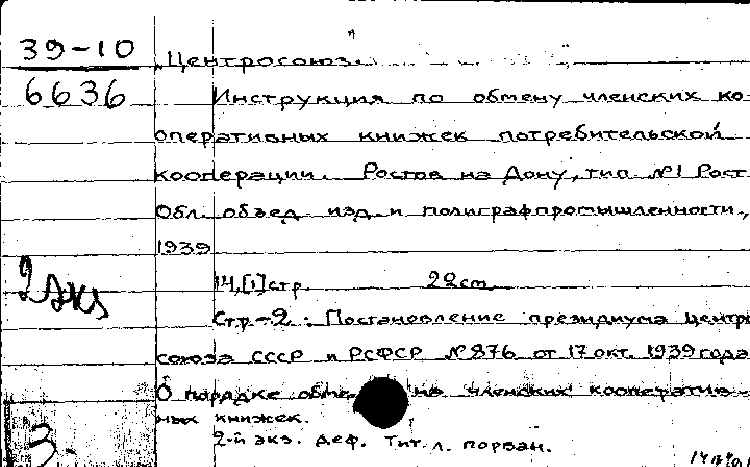 39-10
6636
Центросоюз.
Инструкция по обмену членских ко-
оперативных книжек потребительской
кооперации. Ростов на Дону, тип №1 Рост
Обл. объед изд. и полиграфпромышленности.,
1939
14,[1]стр. 22см.
2 экз
Стр-2: Постановление президиума Центро
союза СССР и РСФСР №876 от 17 окт. 1939 года
О порядке обме на членских кооператив-
ных книжек.
2-й экз. деф. Тит. л. порван.
3.